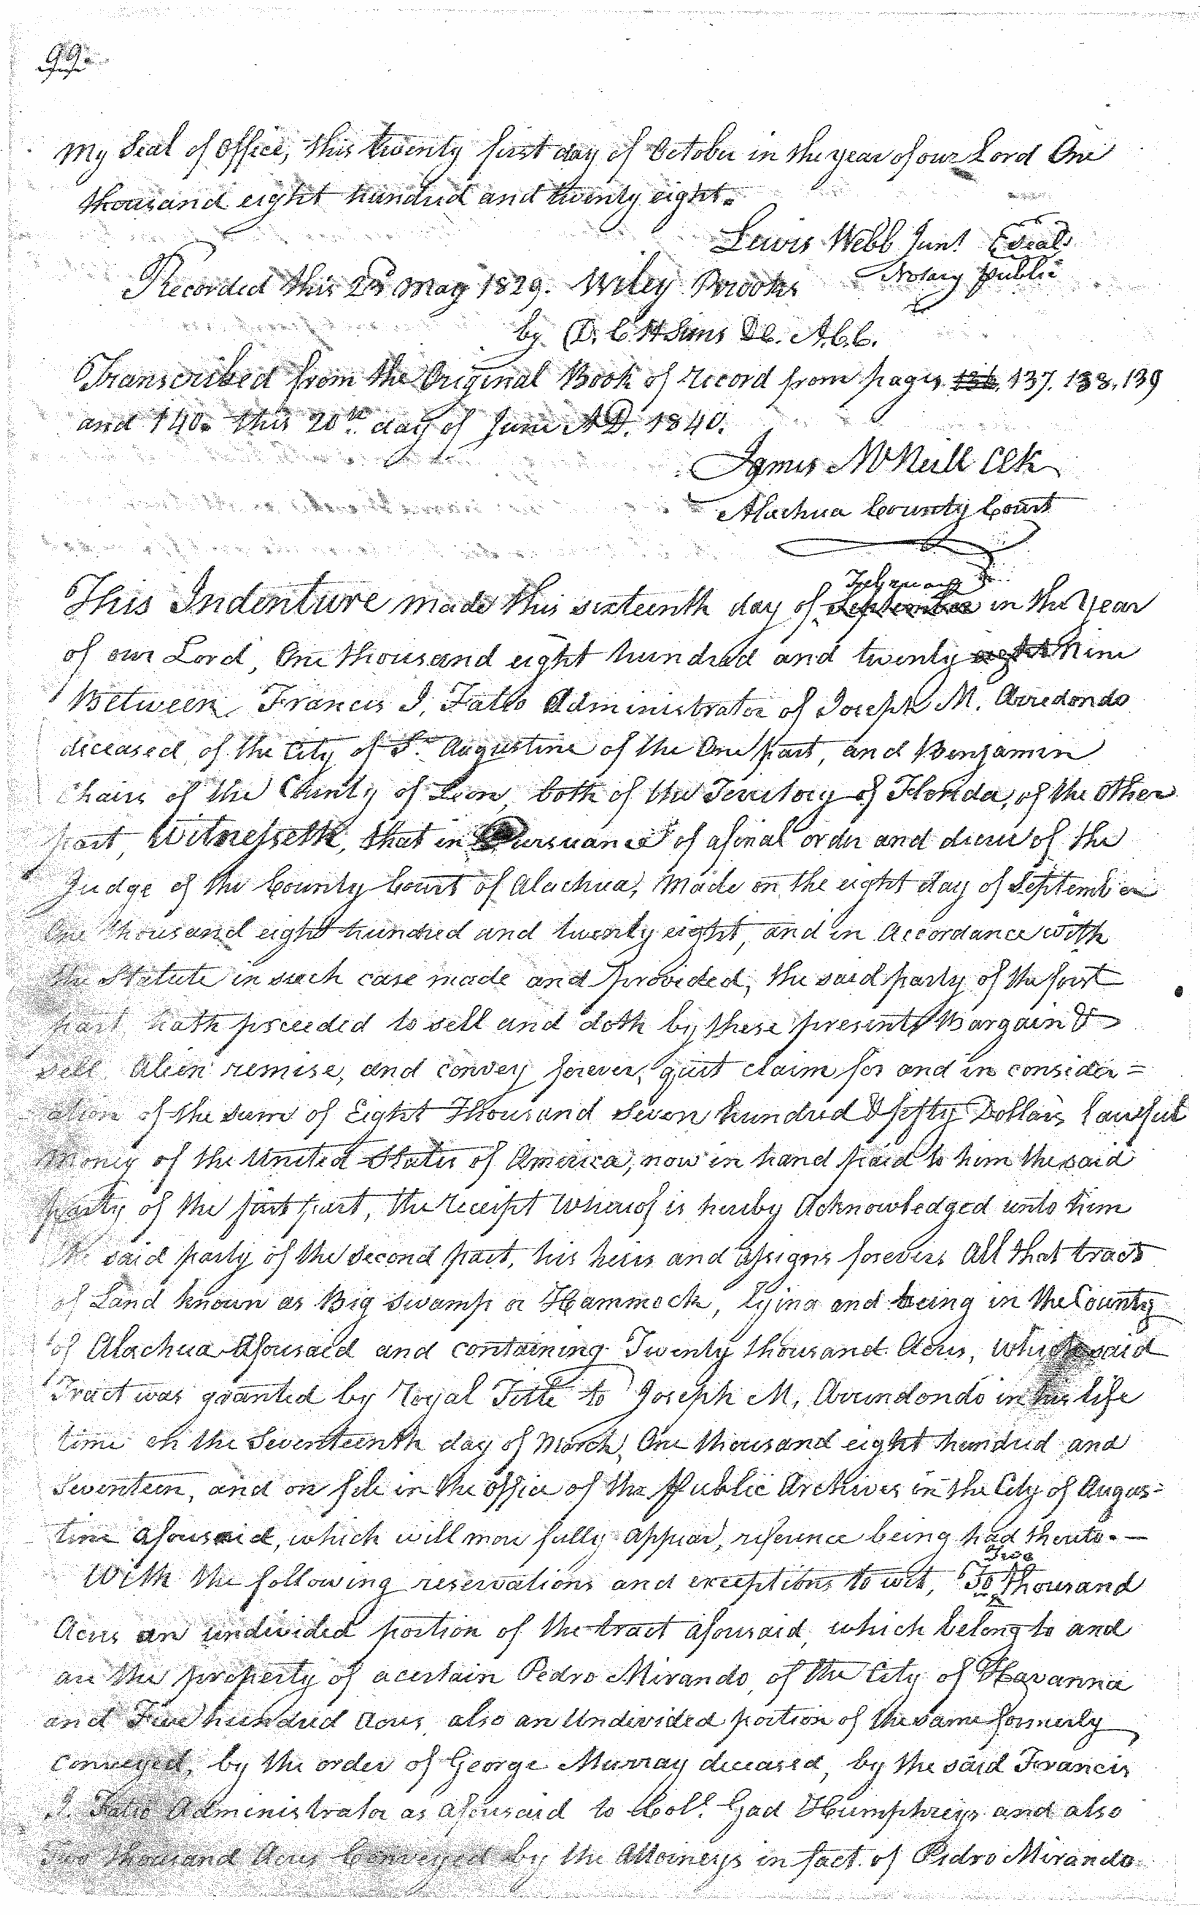 99.
My Seal of Office, this twenty first day of October in the year of our Lord One
thousand eight hundred and twenty eight.
Lewis Webb Junr (Seal)
Notary Public
Recorded this 23d May 1829. Wiley Brooks
by D. C. H Sims DC. A.C.C.
Transcribed from the Original Book of record from pages 136, 137. 138. 139
and 140. this 20th day of June AD. 1840.
James McNeill Clk
Alachua County Court
February
This Indenture made this sixteenth day of September in the Year
of our Lord, One thousand eight hundred and twenty eight Nine
Between Francis J. Fatio Administrator of Joseph M. Arredondo
deceased of the City of St. Augustine of the One part, and Benjamin
Chairs of the County of Leon, both of the Territory of Florida, of the other
part, Witnesseth, that in Pursuance of a final order and decree of the
Judge of the County Court of Alachua, Made on the eight day of September
One thousand eight hundred and twenty eight, and in Accordance with
the Statute in such case made and provided, the said party of the first
part hath proceeded to sell and doth by these presents Bargain &
sell Alien remise, and convey forever, quit claim for and in consider=
ation of the sum of Eight Thousand Seven hundred & fifty Dollars lawful
Money of the United States of America, now in hand paid to him the said
party of the first part, the receipt whereof is hereby Acknowledged unto him
the said party of the second part, his heirs and assigns forever. All that tract
of Land known as Big Swamp or Hammock, lying and being in the County
of Alachua Afousaid and containing Twenty thousand Acres, which said
Tract was granted by Royal Title to Joseph M. Arrundondo in his life
time on the Seventeenth day of March, One thousand eight hundred and
Seventeen, and on file in the office of the Public Archives in the City of Augus=
tine afousaid, which will more fully appear, reference being had thereto.—
Two
With the following reservations and exceptions to wit, To thousand
Acres an undivided portion of the tract afousaid, which belong to and
are the property of a certain Pedro Mirando, of the City of Havanna
and Five hundred Acres also an Undivided portion of the same formerly
conveyed, by the order of George Murray deceased, by the said Francis
J. Fatio Administrator as afousaid to Coll. Gad Humphreys and also
Two thousand Acres Conveyed by the Attorneys in fact of Pedro Mirando